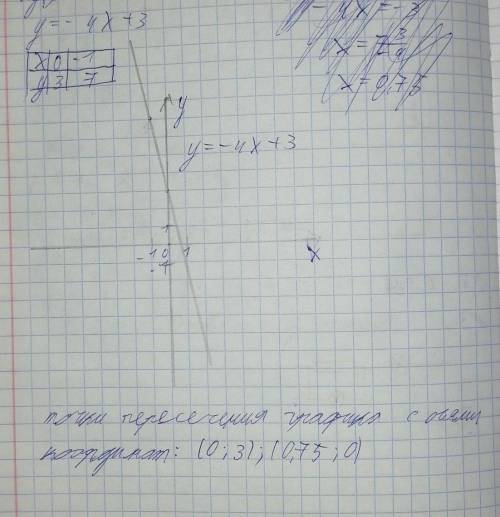 y=-4x+3
-4x=-3
x=
x=0,75
x 0 -1
y 3 7
y
y=-4x+3
1
-1 0 1
-1
x
точки пересечения графика с осями
координат: (0;3);(0,75;0)